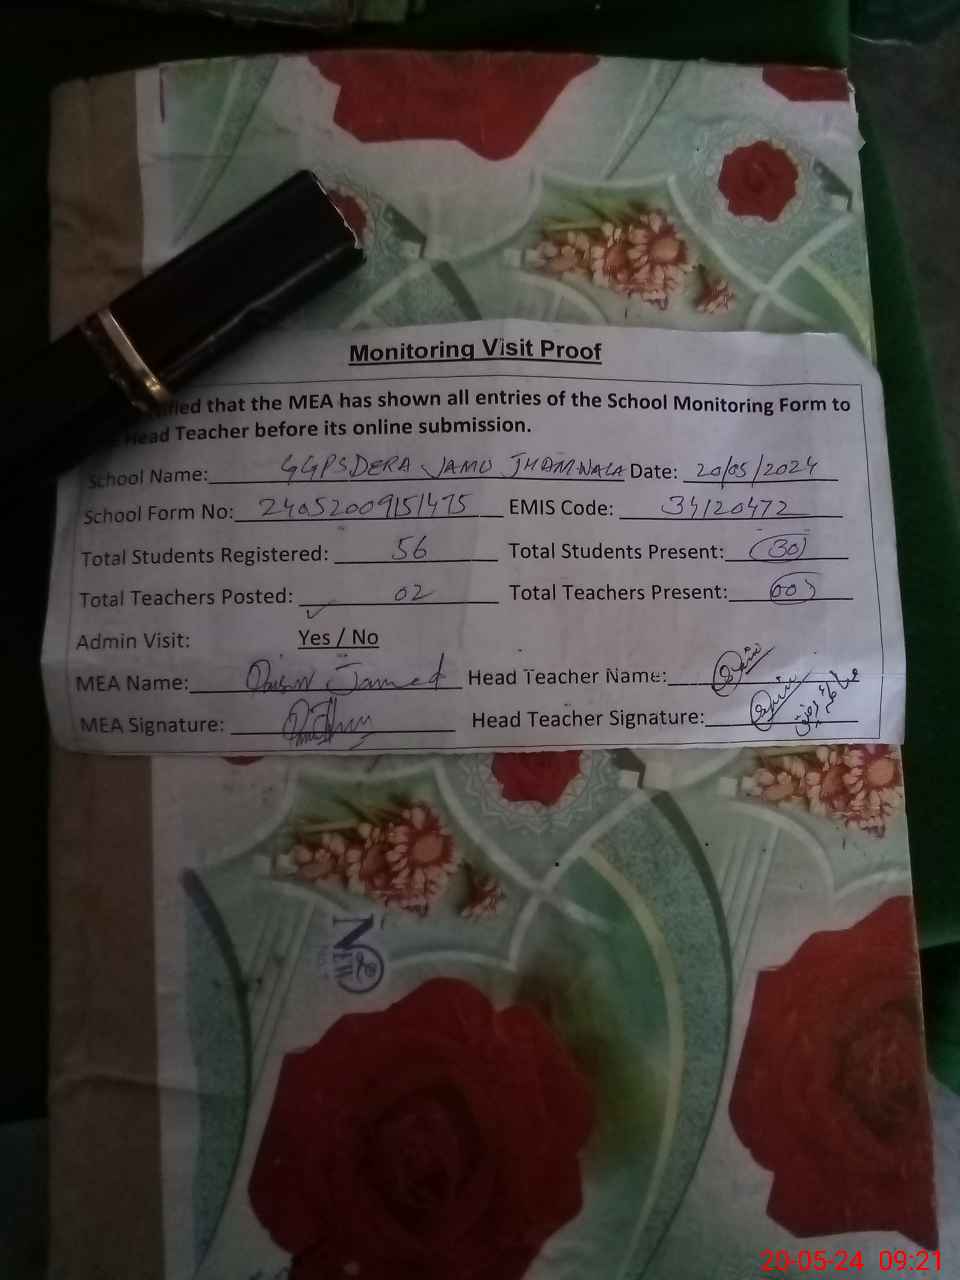 Monitoring Visit Proof
that the MEA has shown all entries of the School Monitoring Form to
Head Teacher before its online submission.
School Name: GGPS DERA JAMU JHAMWALA Date: 20/05/2024
School Form No: 24052009151475 EMIS Code: 34120472
Total Students Registered: 56 Total Students Present: 30
Total Teachers Posted: 02 Total Teachers Present:
Admin Visit: Yes / No
MEA Name: Head Teacher Name:
MEA Signature: Head Teacher Signature:
NEW
20-05-24 09:21